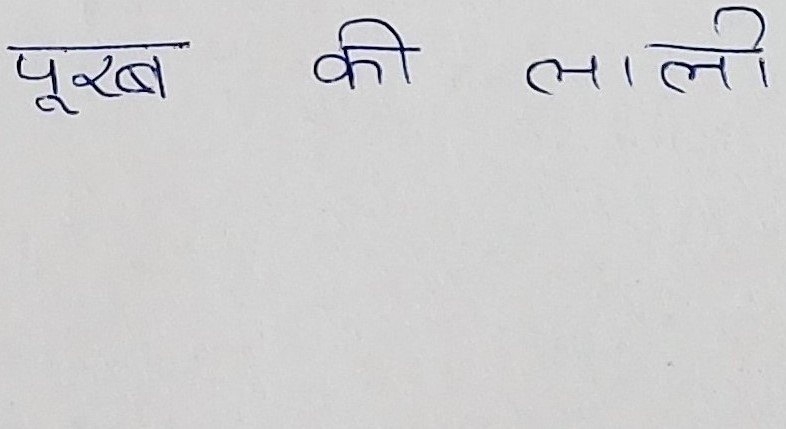 पूरब की लाली